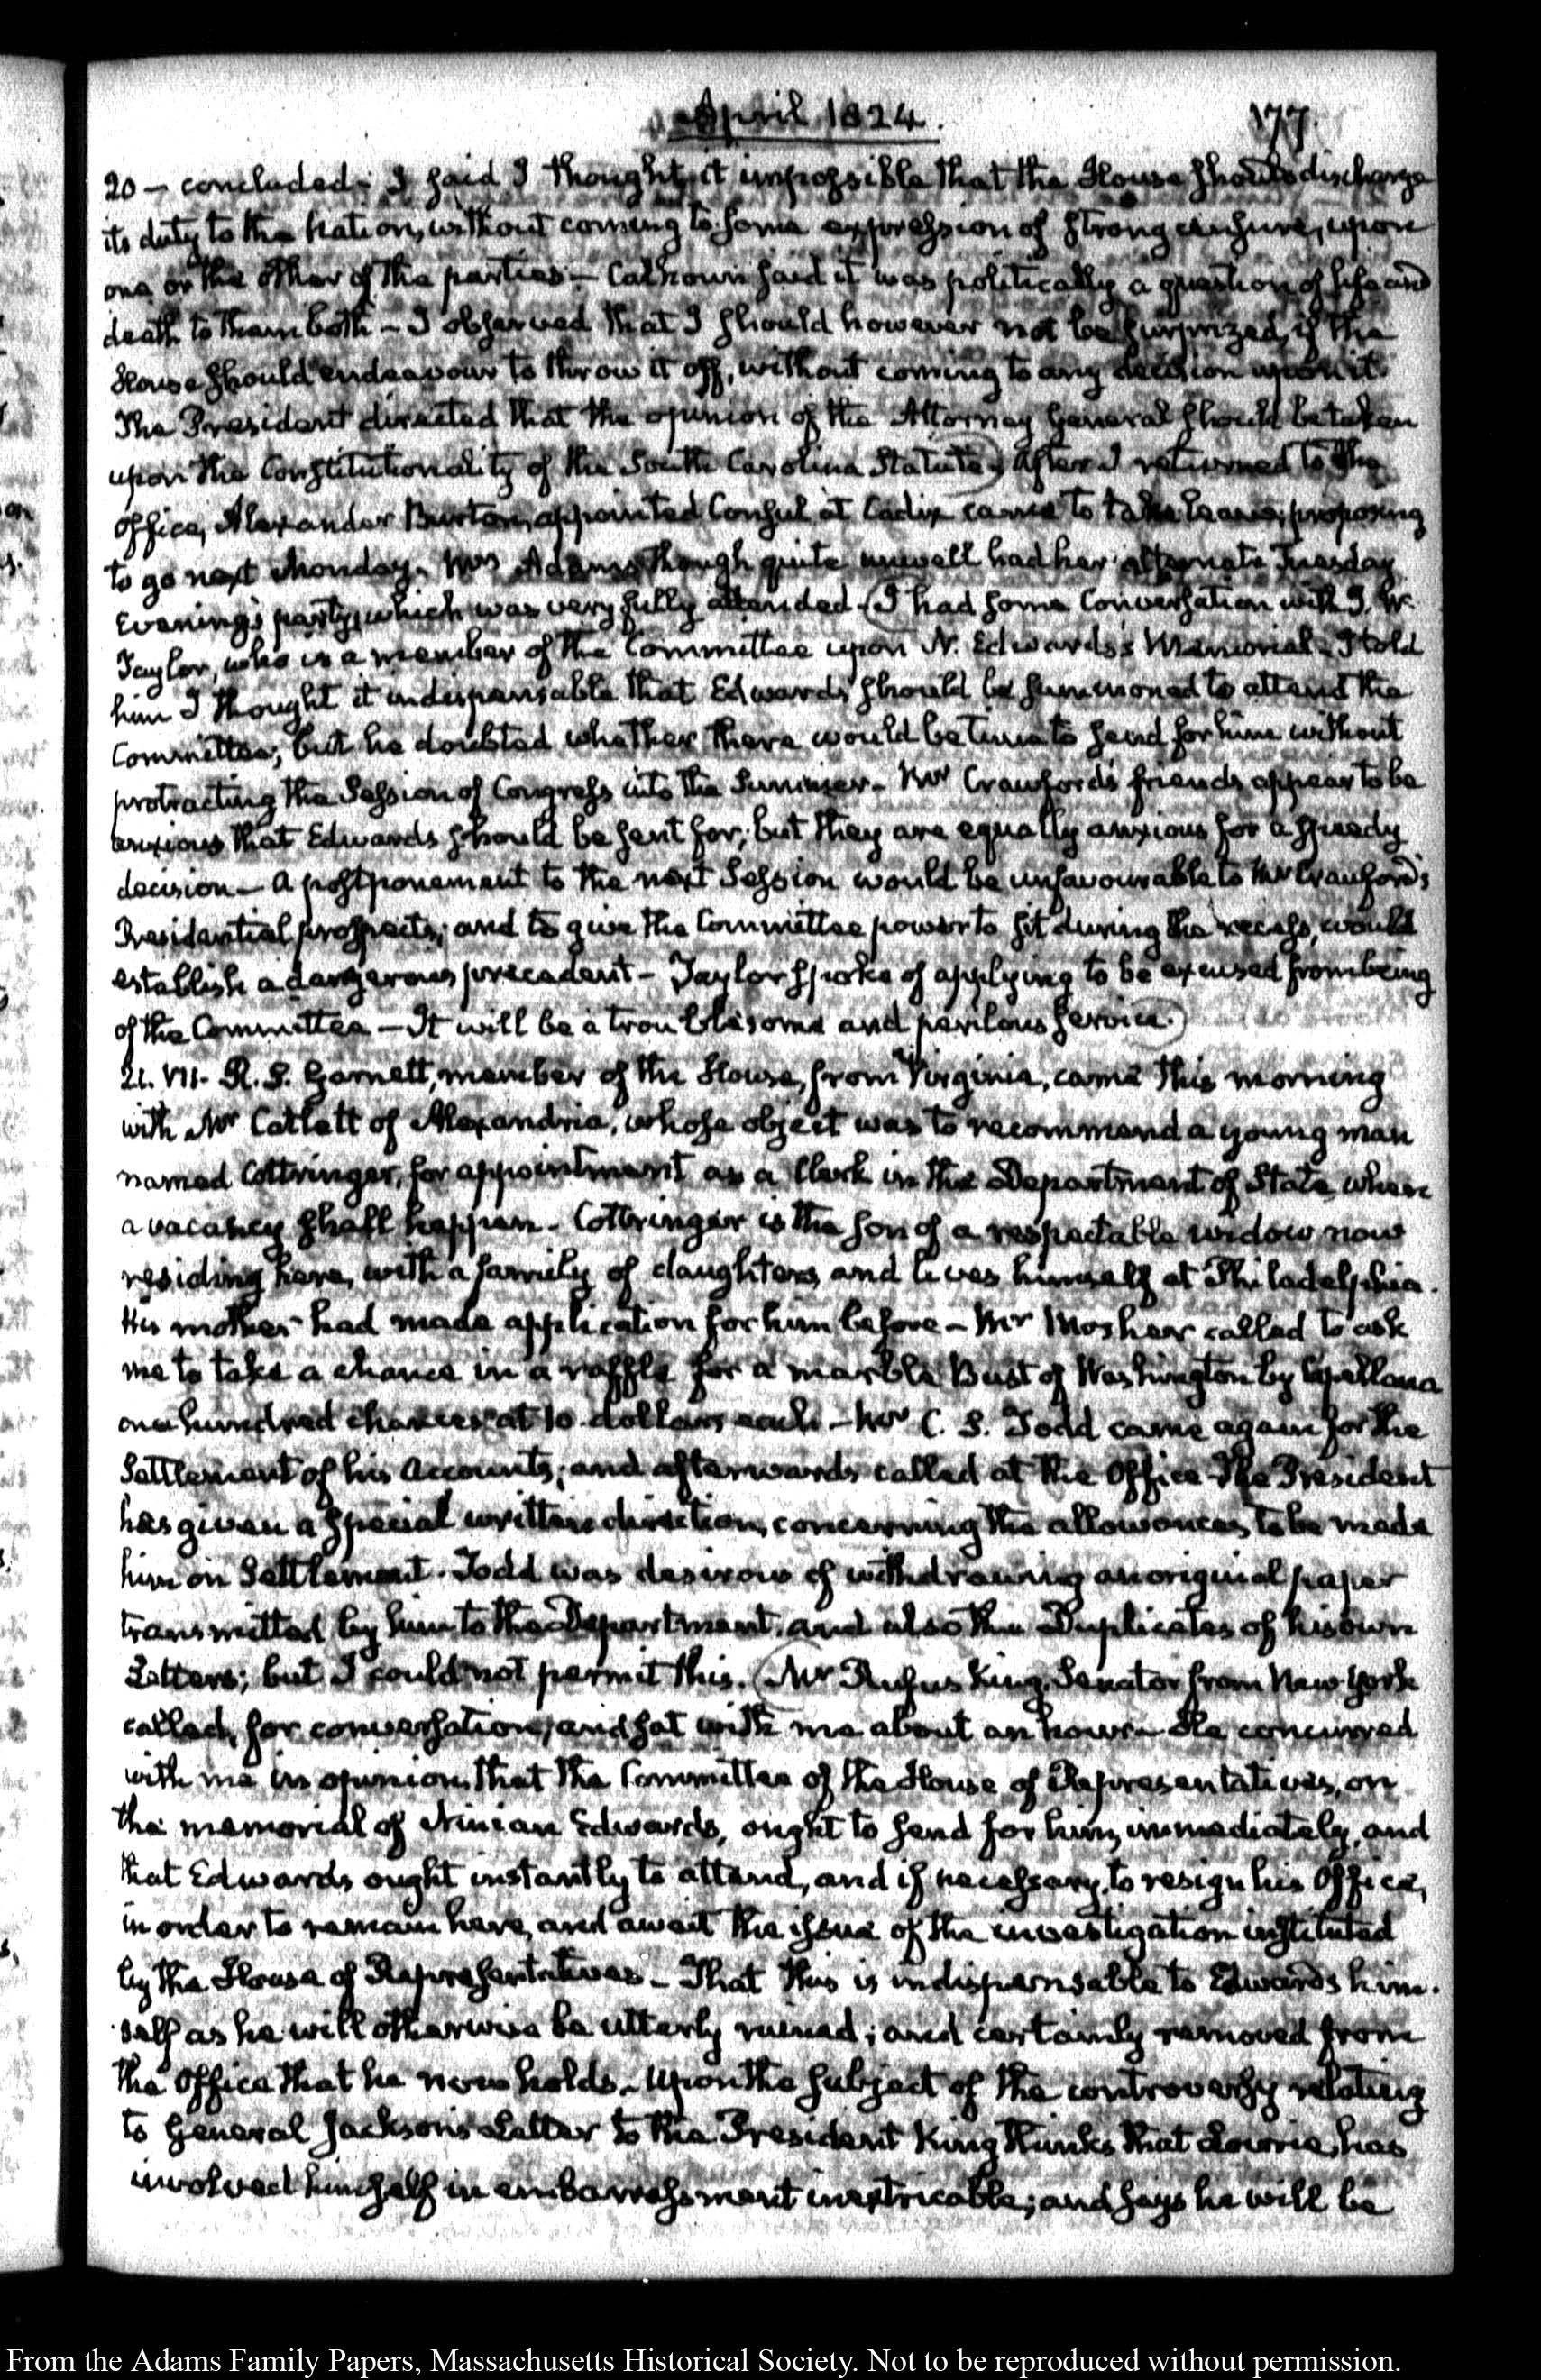 April 1824. 177.
20 — concluded — I said I thought it impossible that the House should discharge
its duty to the Nation, without coming to some expression of strong censure, upon
one or the other of the parties — Calhoun said it was politically a question of life and
death to them both — I observed that I should however not be surprized, if the
House should endeavour to throw it off, without coming to any decision upon it.
The President directed that the opinion of the Attorney General should be taken
upon the Constitutionality of the South Carolina Statute) After I returned to the
Office, Alexander Burton, appointed Consul at Cadiz came to take leave, proposing
to go next Monday. Mrs Adams though quite unwell had her alternate Tuesday
Evening's party, which was very fully attended. (I had some Conversation with J. W.
Taylor, who is a member of the Committee upon N. Edwards's Memorial — I told
him I thought it indispensable that Edwards should be summoned to attend the
Committee; but he doubted whether there would be time to send for him without
protracting the Session of Congress into the Summer. Mr Crawford's friends appear to be
anxious that Edwards should be sent for; but they are equally anxious for a speedy
decision — A postponement to the next Session would be unfavourable to Mr Crawford's
Presidential prospects; and to give the Committee power to sit during the recess, would
establish a dangerous precedent — Taylor spoke of applying to be excused from being
of the Committee — It will be a troublesome and perilous service.)
21. VII. R. S. Garnett, member of the House, from Virginia, came this morning
with Mr Catlett of Alexandria, whose object was to recommend a young man
named Cottringer, for appointment as a Clerk in the Department of State when
a vacancy shall happen. Cottringer is the son of a respectable widow now
residing here, with a family of daughters, and lives himself at Philadelphia.
His mother had made application for him before — Mr Mosher called to ask
me to take a chance in a raffle for a marble Bust of Washington by Capellano
one hundred chances at 10 dollars each — Mr C. S. Todd came again for the
Settlement of his Accounts; and afterwards called at the Office — The President
has given a special written direction, concerning the allowances to be made
him on Settlement. Todd was desirous of withdrawing an original paper
transmitted by him to the Department, and also the Duplicates of his own
Letters; but I could not permit this. (Mr Rufus King, Senator from New-York
called, for conversation; and sat with me about an hour — He concurred
with me in opinion, that the Committee of the House of Representatives, on
the memorial of Ninian Edwards, ought to send for him, immediately, and
that Edwards ought instantly to attend, and if necessary, to resign his Office,
in order to remain here, and await the issue of the investigation instituted
by the House of Representatives — That this is indispensable to Edwards him-
self as he will otherwise be utterly ruined; and certainly removed from
the Office that he now holds. Upon the subject of the controversy relating
to General Jackson's Letter to the President King thinks that Lowrie, has
involved himself in embarrassment inextricable; and says he will be
From the Adams Family Papers, Massachusetts Historical Society. Not to be reproduced without permission.